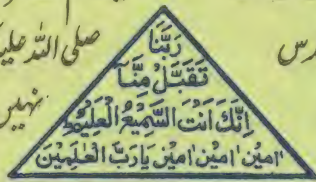 رَبَّنَا
تَقَبَّلْ مِنَّآ
اِنَّكَ اَنْتَ السَّمِيْعُ الْعَلِيْمُ
اٰمِيْن اٰمِيْن اٰمِيْن يَارَبَّ الْعٰلَمِيْنَ
صلی اللہ علیہ
نہیں
درس